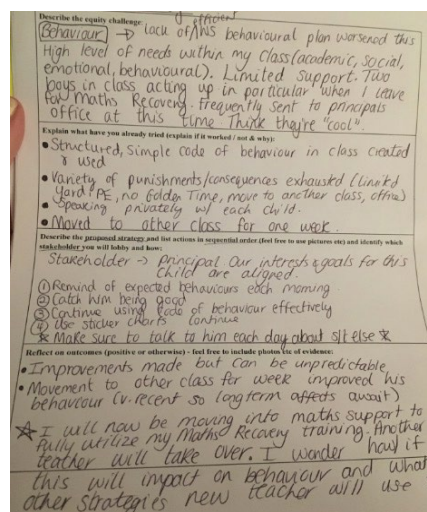 Describe the equity challenge:
Behaviour → lack of efficient WS behavioural plan worsened this
High level of needs within my class (academic, social,
emotional, behavioural). Limited Support. Two
boys in class acting up in particular when I leave
for Maths Recovery. Frequently sent to principals
office at this time. Think they're "cool".
Explain what have you already tried (explain if it worked / not & why):
• Structured, Simple code of behaviour in class created
& used
• Variety of punishments/consequences exhausted (limited
Yard, PE, no Golden Time, move to another class, office)
• Speaking privately w/ each child.
• Moved to other class for one week.
Describe the proposed strategy and list actions in sequential order (feel free to use pictures etc) and identify which
stakeholder you will lobby and how:
Stakeholder → principal Our interests & goals for this
child are aligned.
① Remind of expected behaviours each morning
② Catch him being good
③ Continue using code of behaviour effectively
④ Use sticker charts continue
* Make sure to talk to him each day about s/t else *
Reflect on outcomes (positive or otherwise) - feel free to include photos etc of evidence:
• Improvements made but can be unpredictable
• Movement to other class for week improved his
behaviour (v. recent so long term affects await)
☆ I will now be moving into maths support to
fully utilize my Maths Recovery training. Another
teacher will take over. I wonder how/if
this will impact on behaviour and what
other strategies new teacher will use